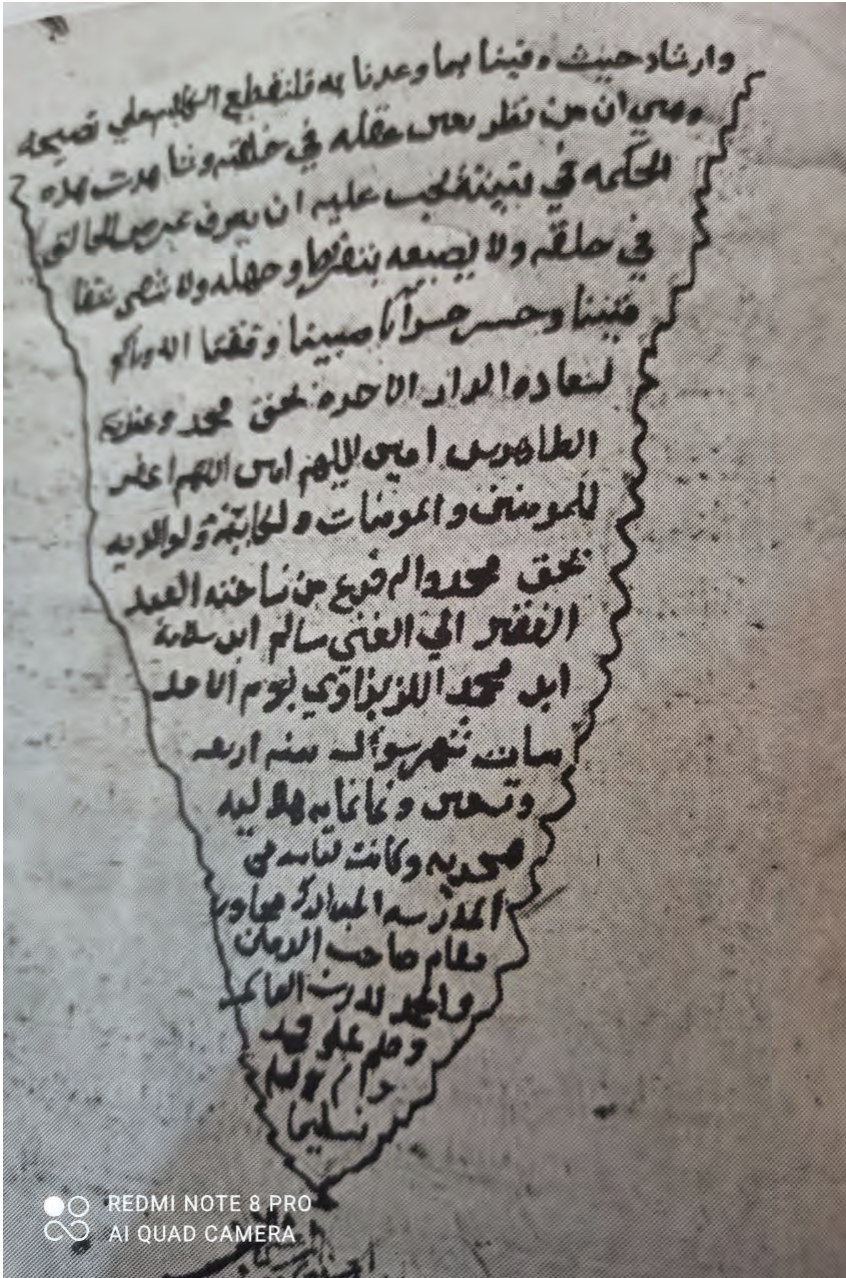 وارشاد حيث وفينا بما وعدنا به فلنقطع الكلام علي نصيحه
وهي ان من نظر بعين عقله في خلقته وتناهدت هذه
الحكمه في بنيته فيجب عليه ان يعرف غرض الخالق
في خلقه ولا يضيعه بتفريط وجهله ولا
وخسر خسرانا مبينا وفقنا الله واياكم
لسعاده الدار الاخره بحق محمد وعترته
الطاهرين امين اللهم امين اللهم اغفر
للمومنين والمومنات ولكاتبه ولوالديه
بحق محمد واله فرغ من نساخته العبد
الفقير الي الغني سالم ابن سلامة
ابن محمد يوم الاحد
شهر شوال سنه اربعه
وتسعين وثمانمايه هلاليه
وكانت كتابته في
المدرسه المباركه مجاور
مقام صاحب الزمان
والحمد لله رب العالمين
وصلى على محمد
واله وسلم
تسليما
REDMI NOTE 8 PRO
AI QUAD CAMERA